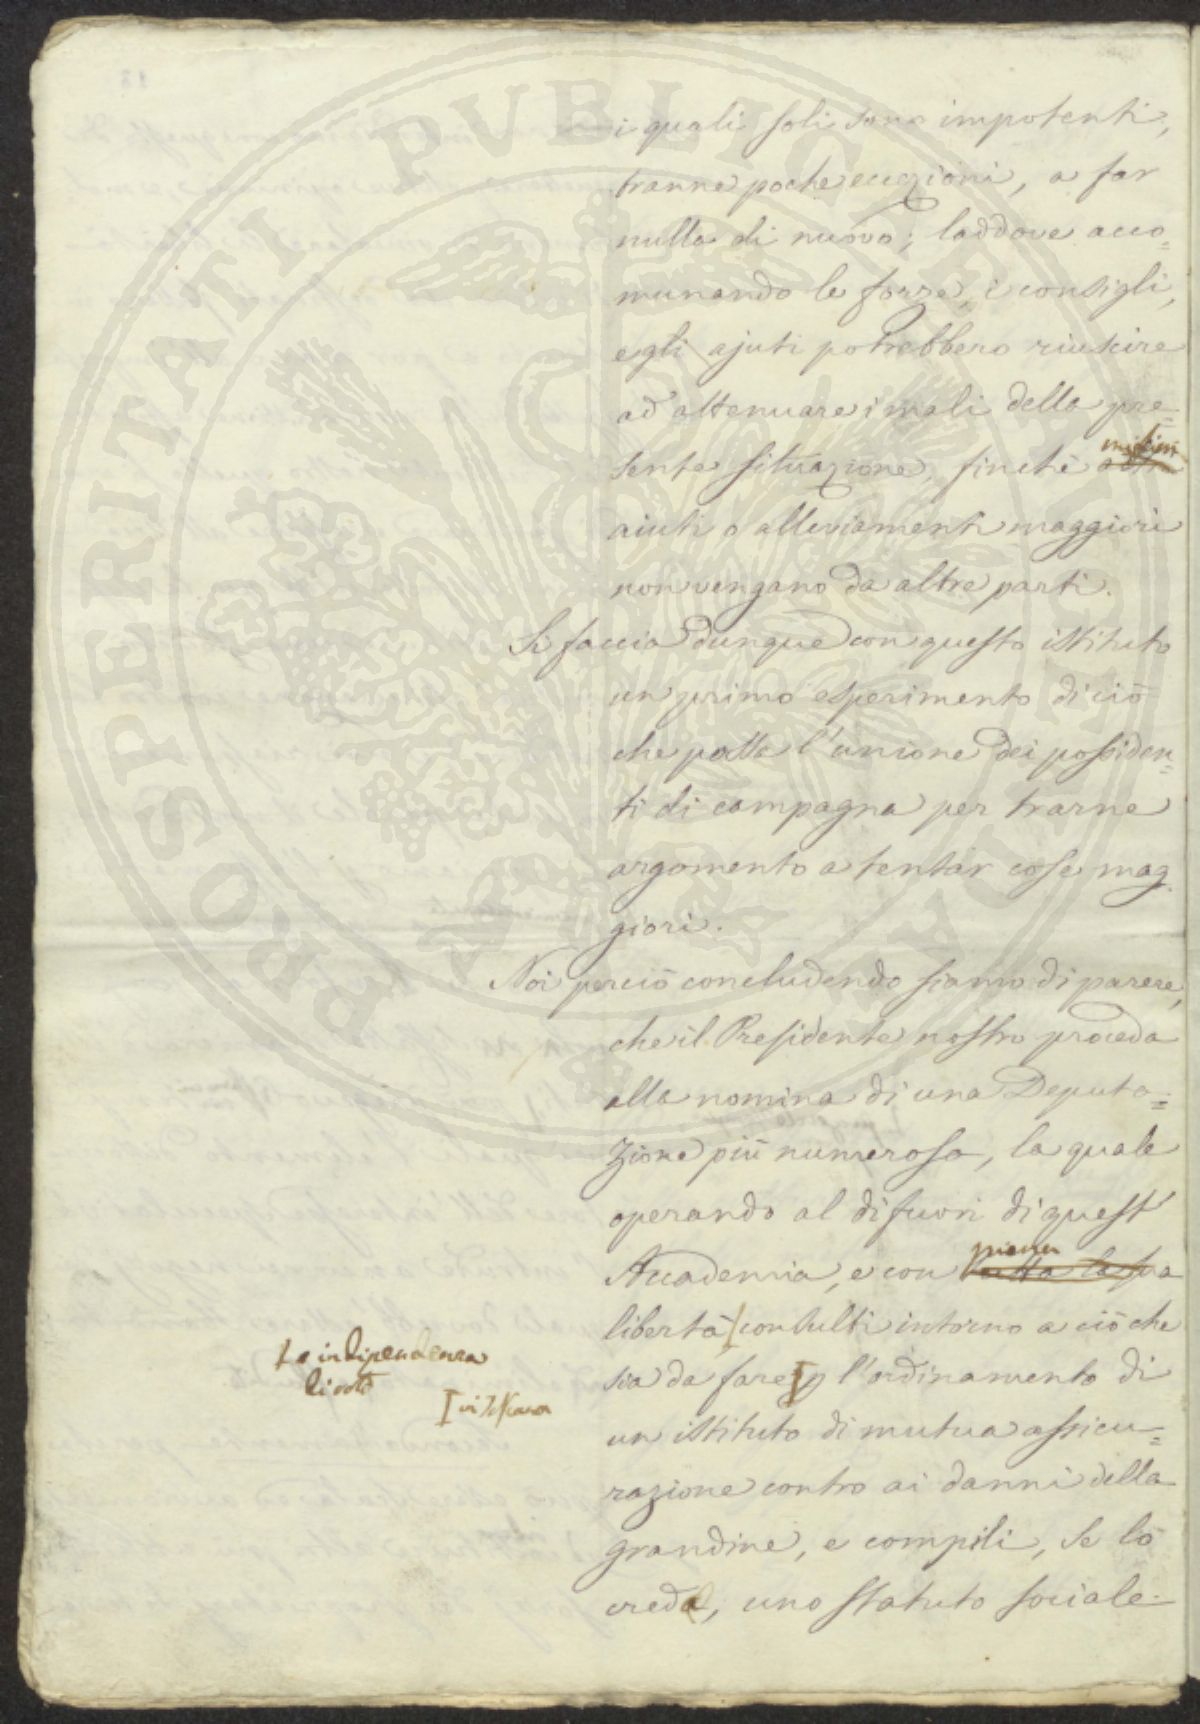 i quali soli sono impotenti,
tranne poche eccezioni, a far
nulla di nuovo; laddove acco=
munando le forze, i consigli,
e gli ajuti potrebbero riuscire
ad attenuare i mali della pre=
sente situazione, finchè
aiuti o alleviamenti maggiori
non vengano da altre parti.
Si faccia dunque con questo istituto
un primo esperimento di ciò
che possa l'unione dei possiden=
ti di campagna per trarne
argomento a tentar cose mag=
giori.
Noi perciò concludendo siamo di parere,
che il Presidente nostro proceda
alla nomina di una Deputa=
zione più numerosa, la quale
operando al di fuori di quest'
piena
Accademia, e con tutta la sua
libertà consulti intorno a ciò che
sia da fare p l'ordinamento di
un istituto di mutua assicu=
razione contro ai danni della
grandine, e compili, se lo
creda, uno statuto sociale
e indipendenza
di voto
PROSPERITATI PVBLICAE AVGENDAE